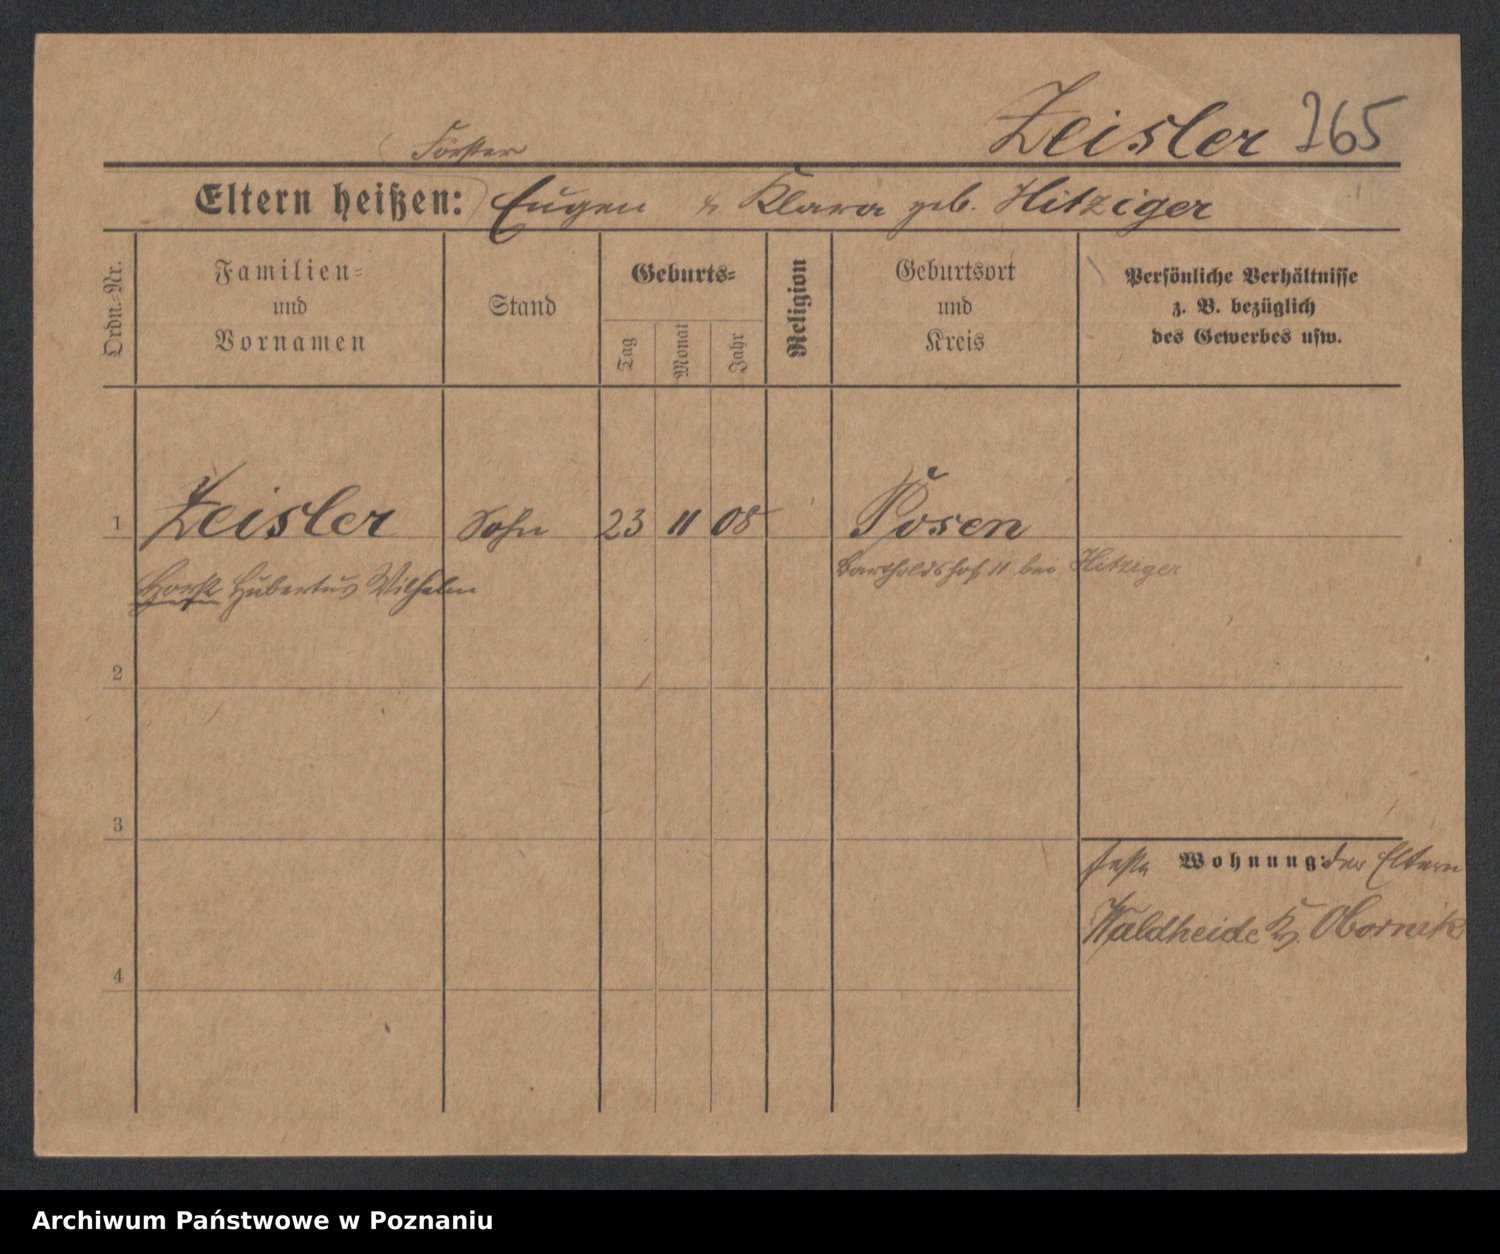 Zeisler 265
Förster
Eltern heißen: Eugen & Klara geb. Hitziger
Ordn.-Nr.
Familien-
und
Vornamen
Stand
Geburts-
Tag
Monat
Jahr
Religion
Geburtsort
und
Kreis
Persönliche Verhältnisse
z. B. bezüglich
des Gewerbes usw.
1 Zeisler Sohn 23 11 08 Posen
Horst Hubertus Wilhelm
Bartholdshof 11 bei Hitziger
2
3
feste Wohnung: der Eltern
Waldheide Kr. Obornik
4
Archiwum Państwowe w Poznaniu